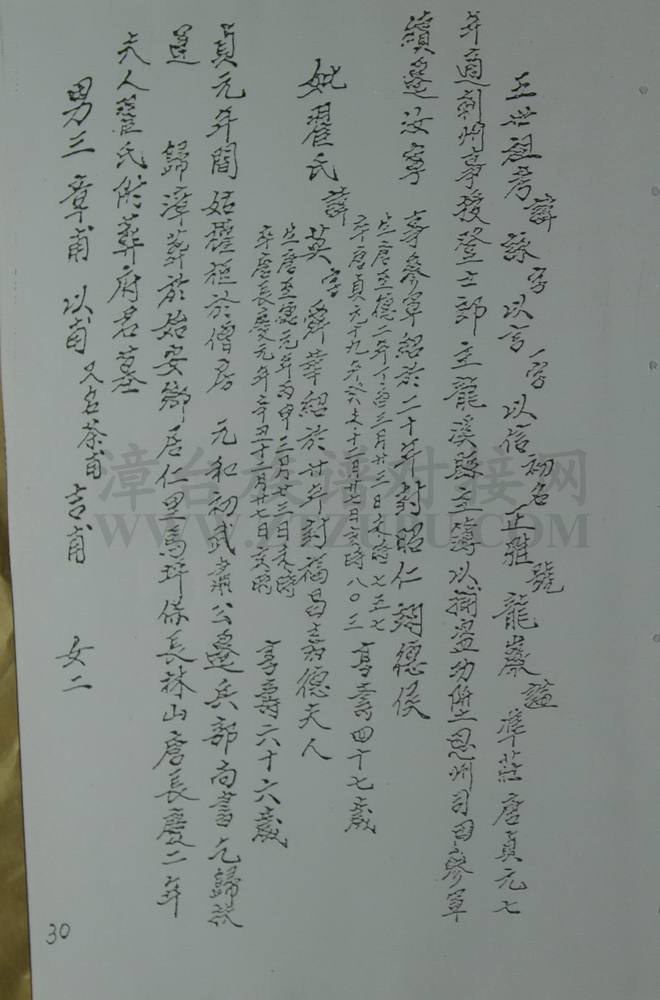 五世祖考諱詠字以言一字以信初名正雅號龍巖謚準莊唐貞元七
年通判州事授登士郎主龍溪縣主簿以捕盜功陞恩州司田參軍
續遷汝寧
亭參軍紹於二十年封昭仁翊德侯
生唐至德二年丁酉三月廿三日未時七五七
卒唐貞元十九年癸未十二月廿七日亥時八〇三
享壽四十七歲
妣翟氏諱英字舜華紹於廿年封福昌嘉德夫人
生唐至德元年丙申三月廿三日未時
卒唐長慶元年辛丑十二月廿七日亥時
享壽六十六歲
貞元年間始權柩於僧房元和初武肅公遷兵部尚書乞歸後
還歸漳葬於始安鄉居仁里馬坪保長林山唐長慶二年
夫人翟氏附葬府君墓
男三章甫以甫又名荼甫吉甫女二
30
漳台族谱对接网
WWW.ZTZUPU.COM